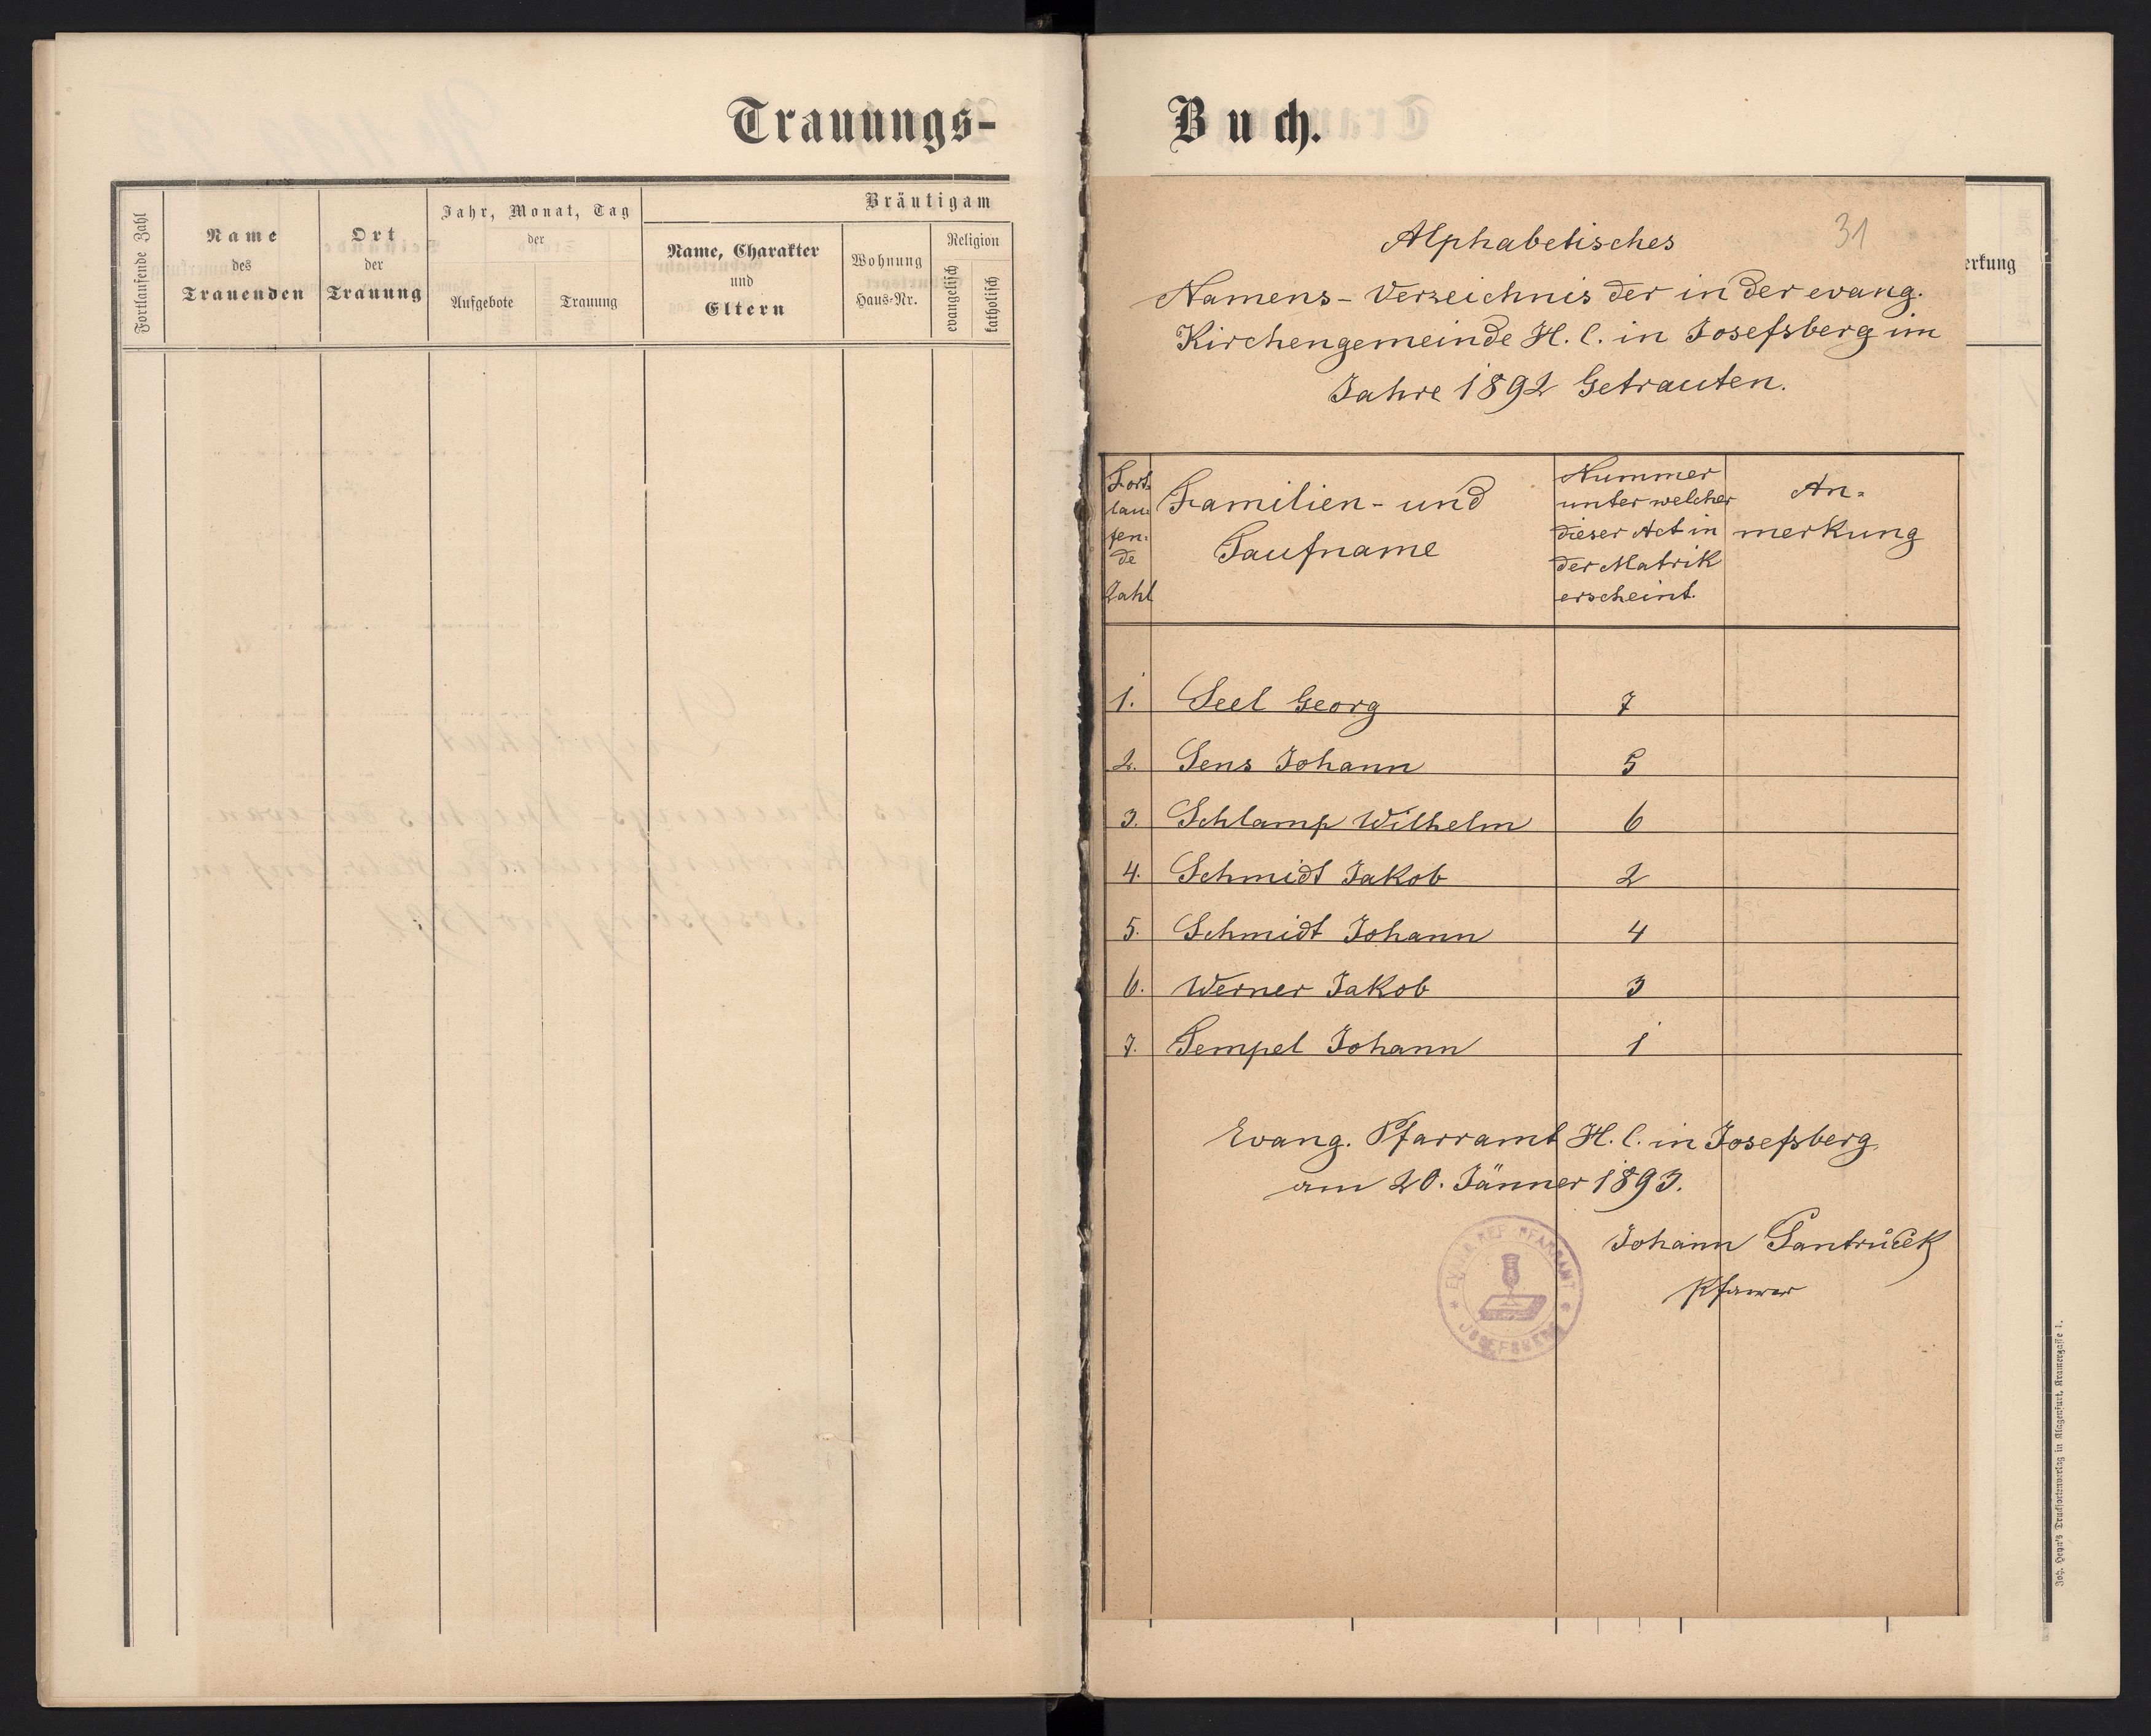 Trauungs-
Buch.
Fortlaufende Zahl
Name
des
Trauenden
Ort
der
Trauung
Jahr, Monat, Tag
der
Aufgebote
Trauung
Bräutigam
Name, Charakter
und
Eltern
Wohnung
Haus-Nr.
Religion
evangelisch
katholisch
erkung
31
Alphabetisches
Namens-Verzeichnis der in der evang.
Kirchengemeinde H. C. in Josefsberg im
Jahre 1892 Getrauten.
Fort-
lau-
fen-
de
Zahl
Familien- und
Taufname
Nummer
unter welcher
dieser Act in
der Matrik
erscheint.
An-
merkung
1. Seel Georg 7
2. Sens Johann 5
3. Schlamp Wilhelm 6
4. Schmidt Jakob 2
5. Schmidt Johann 4
6. Werner Jakob 3
7. Tempel Johann 1
Evang. Pfarramt H. C. in Josefsberg
am 20. Jänner 1893.
Johann Pantrůček
Pfarrer
REF. PFARRAMT
JOSEFSBERG
Joh. Heyn's Drucksortenverlag in Klagenfurt, Kramergasse 1.